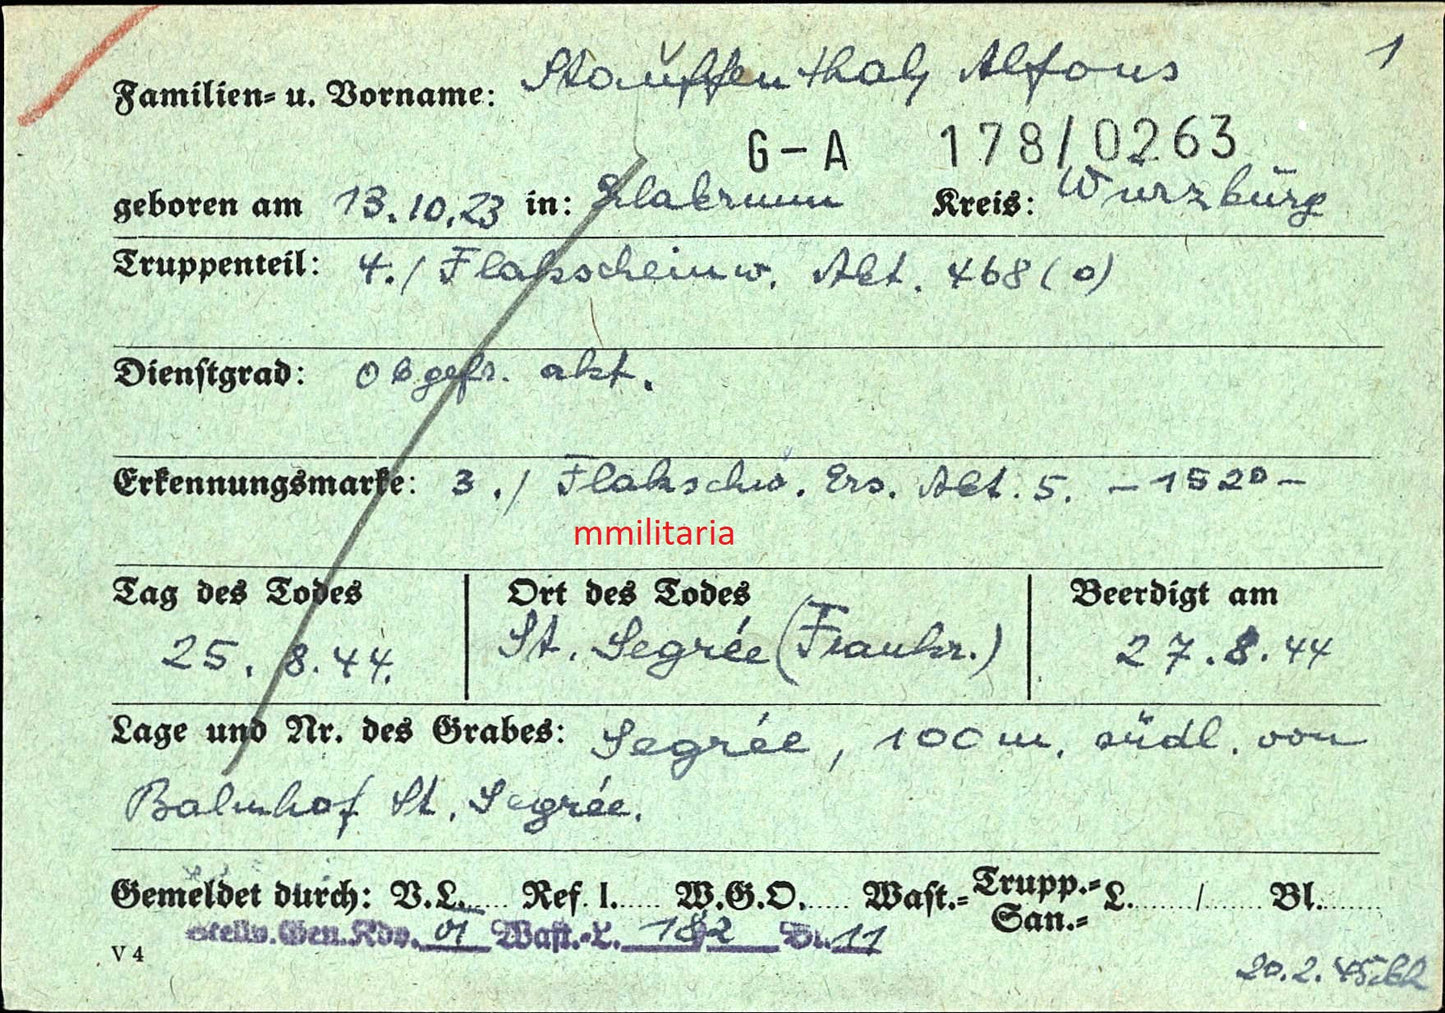 1
Familien- u. Vorname: Stauffenthal, Alfons
G-A 178/0263
geboren am 13.10.23 in: Kreis: Würzburg
Truppenteil: 4./ Flakscheinw. Abt. 468 (o)
Dienstgrad: Obgefr. akt.
Erkennungsmarke: 3./ Flakschw. Ers. Abt. 5. -1520-
mmilitaria
Tag des Todes Ort des Todes Beerdigt am
25. 8. 44. St. Segrée (Frankr.) 27.8.44
Lage und Nr. des Grabes: Segrée, 100 m. südl. von
Bahnhof St. Segrée.
Gemeldet durch: V.L..... Ref. I..... W.G.O..... Wast.= Trupp.= L....../...... Bl.......
San.=
Stellv. Gen. Kdo. Wast.-L. 182 Bl. 11
V 4
20.2.45